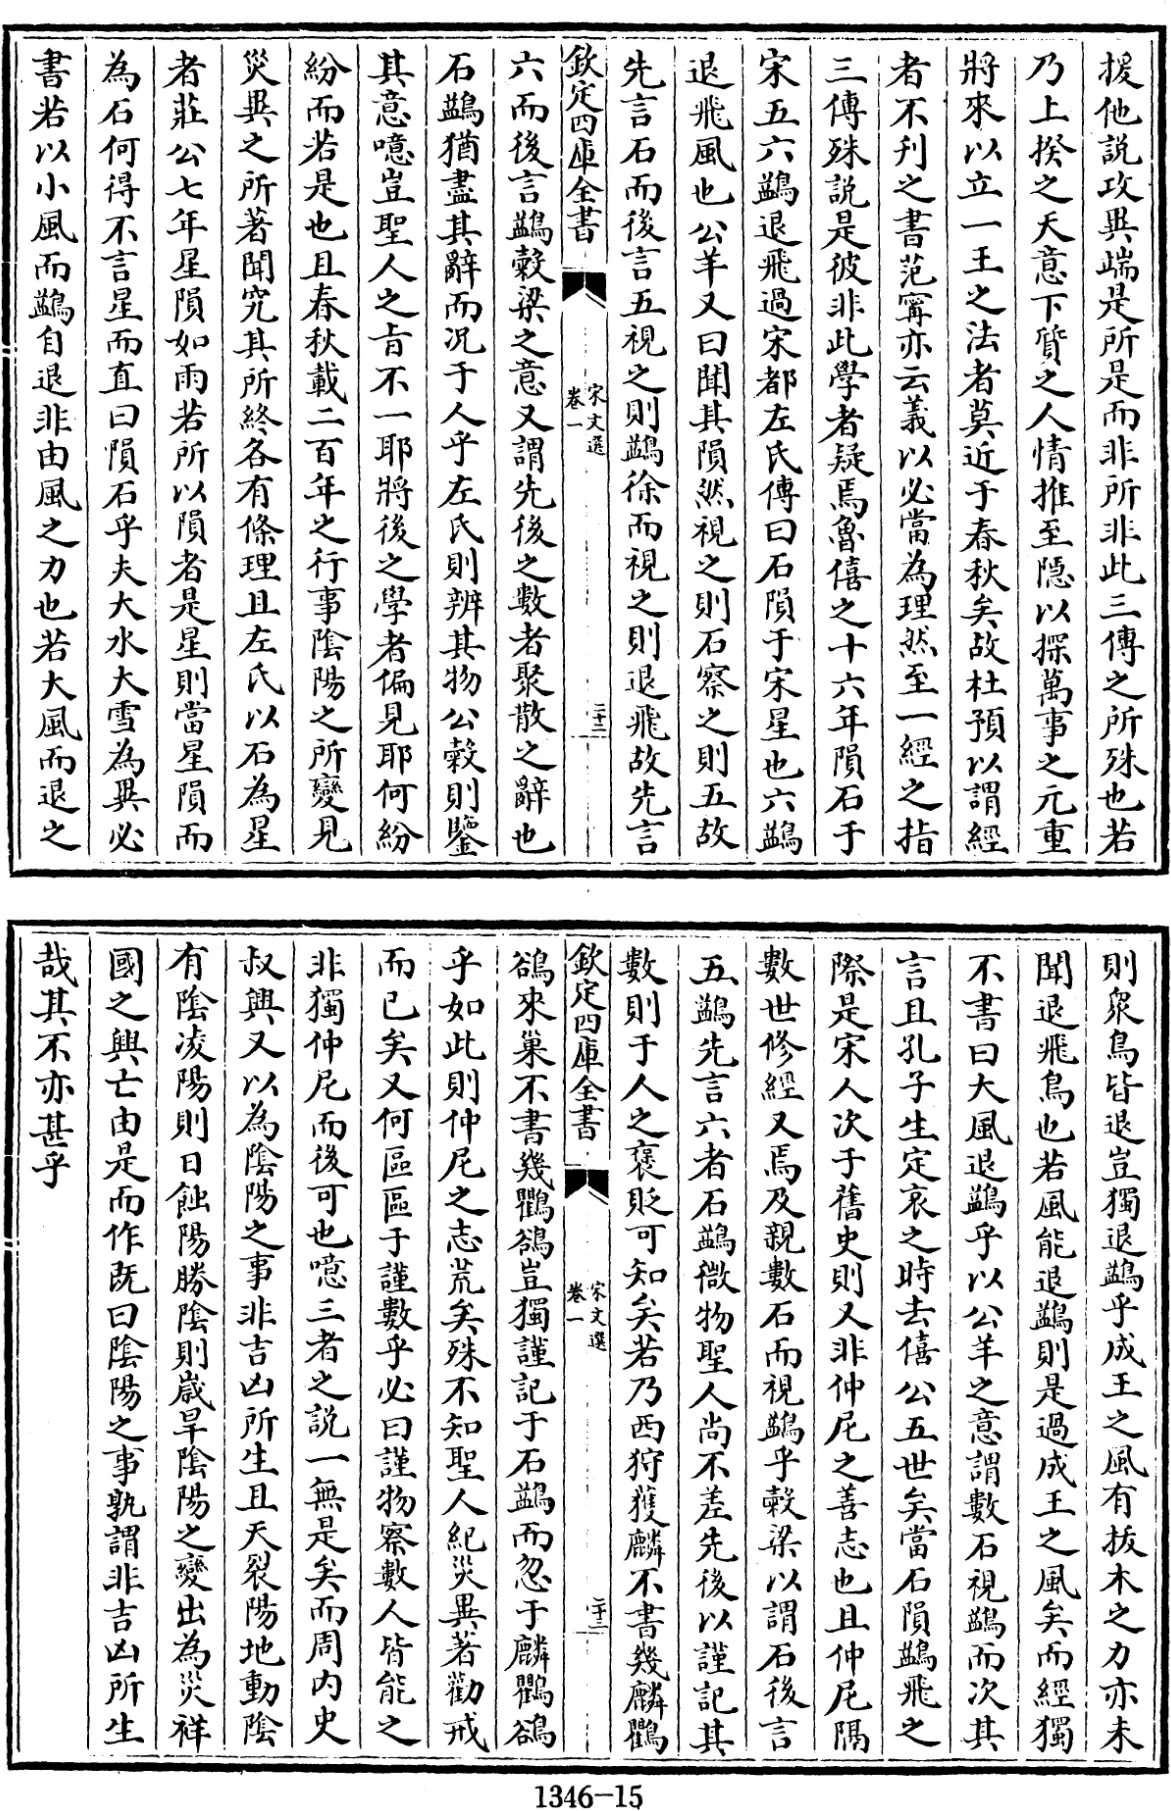 援他説攻異端是所是而非所非此三傳之所殊也若
乃上揆之天意下質之人情推至隐以探萬事之元重
將來以立一王之法者莫近于春秋矣故杜預以謂經
者不刋之書范寗亦云義以必當為理然至一經之指
三傳殊説是彼非此學者疑焉魯僖之十六年隕石于
宋五六鷁退飛過宋都左氏傳曰石隕于宋星也六鷁
退飛風也公羊又曰聞其隕然視之則石察之則五故
先言石而後言五視之則鷁徐而視之則退飛故先言
欽定四庫全書
宋文選
卷一
二十二
六而後言鷁穀梁之意又謂先後之數者聚散之辭也
石鷁猶盡其辭而况于人乎左氏則辨其物公穀則鑒
其意噫豈聖人之㫖不一耶將後之學者偏見耶何紛
紛而若是也且春秋載二百年之行事陰陽之所變見
災異之所著聞究其所終各有條理且左氏以石為星
者莊公七年星隕如雨若所以隕者是星則當星隕而
為石何得不言星而直曰隕石乎夫大水大雪為異必
書若以小風而鷁自退非由風之力也若大風而退之
則衆鳥皆退豈獨退鷁乎成王之風有拔木之力亦未
聞退飛鳥也若風能退鷁則是過成王之風矣而經獨
不書曰大風退鷁乎以公羊之意謂數石視鷁而次其
言且孔子生定哀之時去僖公五世矣當石隕鷁飛之
際是宋人次于舊史則又非仲尼之善志也且仲尼隔
數世修經又焉及親數石而視鷁乎穀梁以謂石後言
五鷁先言六者石鷁微物聖人尚不差先後以謹記其
數則于人之褒貶可知矣若乃西狩獲麟不書幾麟鸜
欽定四庫全書
宋文選
卷一
二十三
鵒來巢不書幾鸜鵒豈獨謹記于石鷁而忽于麟鸜鵒
乎如此則仲尼之志荒矣殊不知聖人紀災異著勸戒
而已矣又何區區于謹數乎必曰謹物察數人皆能之
非獨仲尼而後可也噫三者之説一無是矣而周内史
叔興又以為陰陽之事非吉凶所生且天裂陽地動陰
有陰凌陽則日蝕陽勝陰則嵗旱陰陽之變出為災祥
國之興亡由是而作既曰陰陽之事孰謂非吉凶所生
哉其不亦甚乎
1346-15